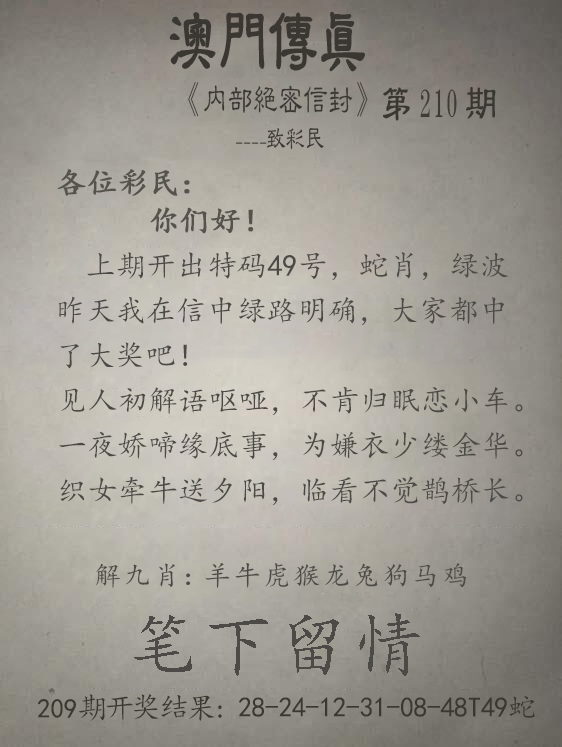 澳門傳眞
《内部絕密信封》第210期
----致彩民
各位彩民：
你们好！
上期开出特码49号，蛇肖，绿波
昨天我在信中绿路明确，大家都中
了大奖吧！
见人初解语呕哑，不肯归眠恋小车。
一夜娇啼缘底事，为嫌衣少缕金华。
织女牵牛送夕阳，临看不觉鹊桥长。
解九肖：羊牛虎猴龙兔狗马鸡
笔下留情
209期开奖结果：28-24-12-31-08-48T49蛇